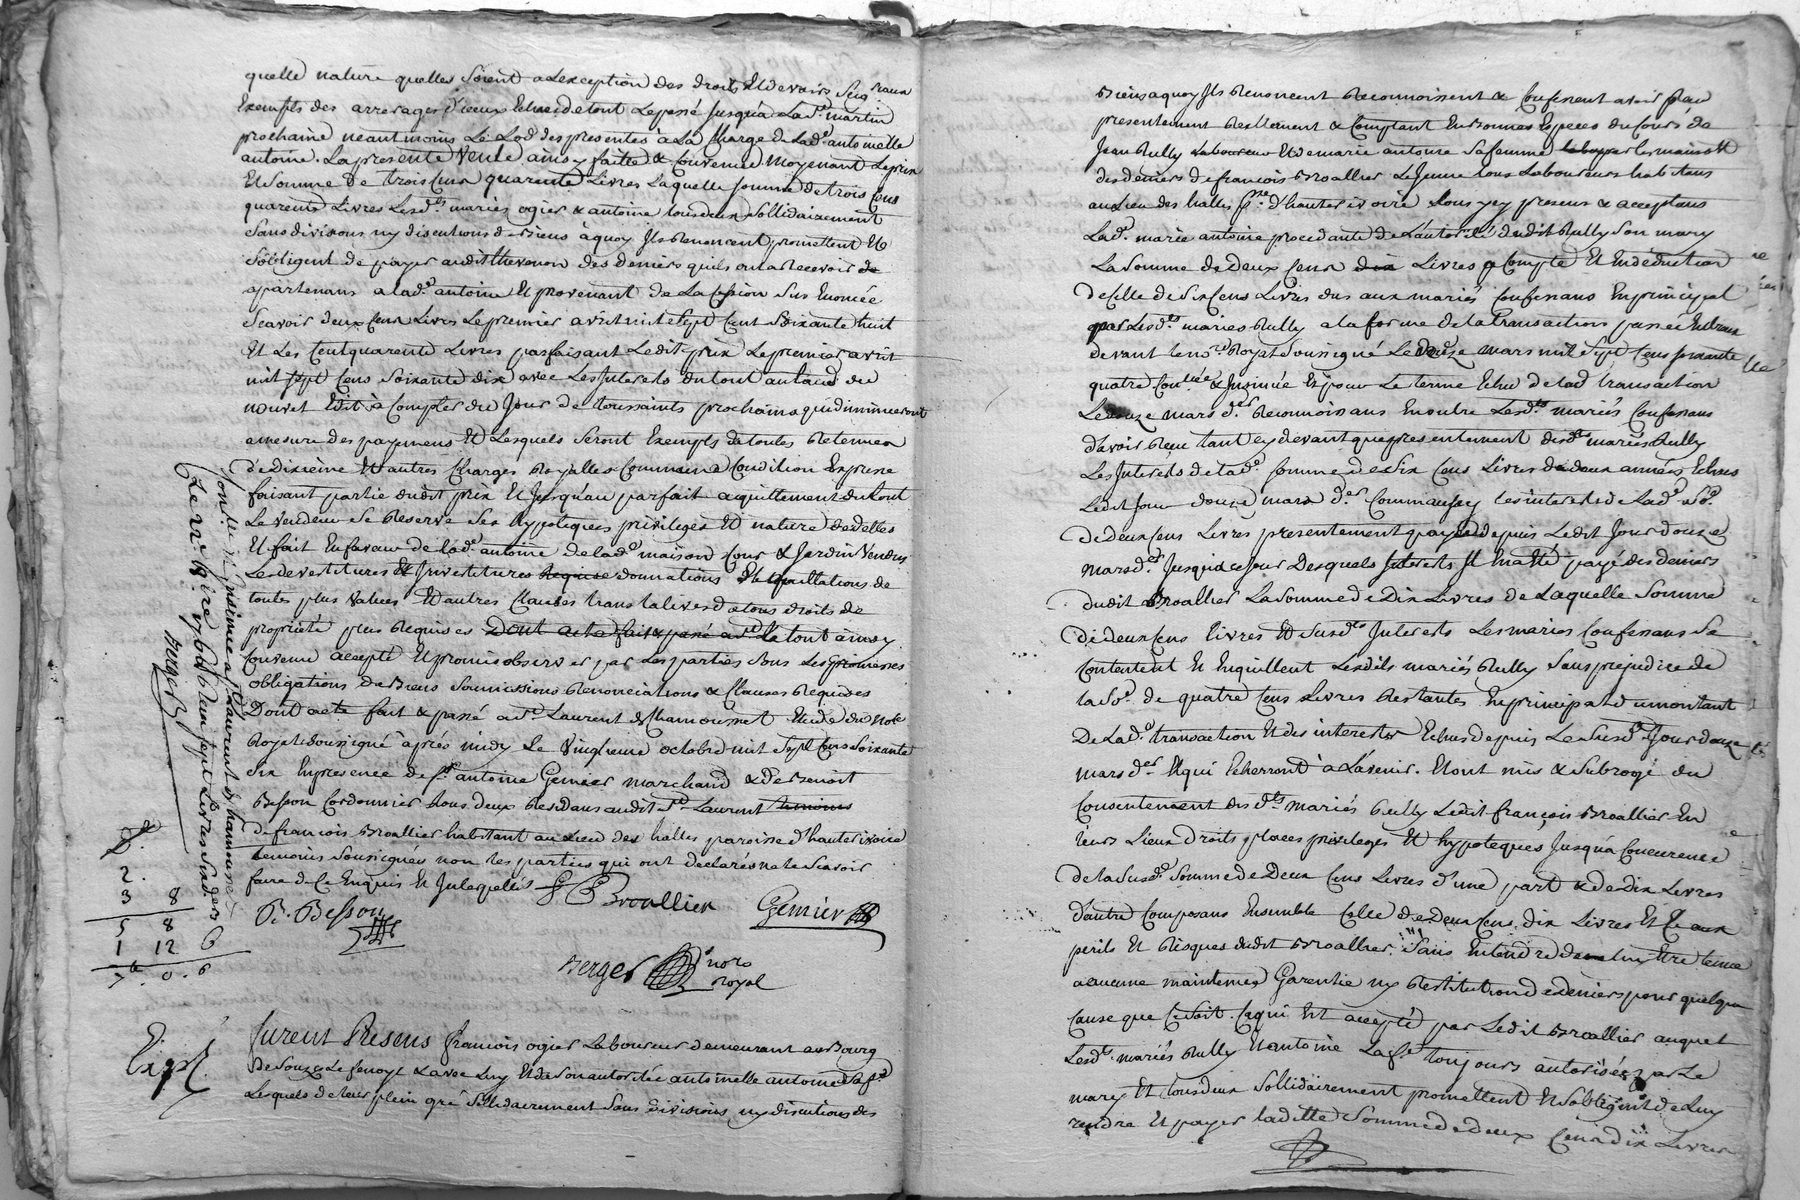 quelle nature quelles soient a lexception des droits et devoirs seig.riaux
exempts des arrerages d'iceux echus de tout le passé jusqu'a la s.t martin
prochaine neantmoins le lod des presentes a la charge de lad.e antoinette
antoine. La presente vente ainsy faitte & convenue moyenant le prix
et somme de trois cens quarente livres laquelle somme de trois cens
quarente livres lesd.ts mariés ogier & antoine tous deux sollidairement
sans divisions ny discutions de biens a quoy ils renoncent promettent et
s'obligent de payer audit thevenon des deniers quils ont a recevoir de
appartenans a lad.e antoine et provenant de la cession sus enoncée
scavoir deux cens livres le premier avril mil sept cent soixante huit
et les cent quarente livres parfaisant ledit prix le premier avril
mil sept cens soixante dix avec les interets du tout au taux du
nouvel edit a compter du jour de toussaints prochains qui diminueront
a mesure des payemens et lesquels seront exempts de toutes retenues
de dixieme et autres charges royalles comme une condition expresse
faisant partie dudit prix et jusqu'au parfait aquittement du tout
le vendeur se reserve ses hypoteques privileges et nature d'icelles
et fait en faveur de lad.e antoine de lad.e maison cour & jardin vendus
les devestitures et investitures requises donnations et
toutes plus values et autres clauses translatives de tous droits de
propriété plus requises Dont acte fait & passé a s.t le tout ainsy
convenu accepté et promis observer par les parties sous les promesses
obligations de biens soumissions renonciations & clauses requises
Dont acte fait & passé a s.t Laurent de chamousset etude du no.re
royal soussigné après midy le vingtieme octobre mil sept cens soixante
six en presence de s.r antoine Gemier marchand & de Benoit
Besson cordonnier tous deux residans audit s.t Laurent temoins
de françois Broallier habitant au lieu des halles paroisse d'hauterivoire
temoins soussignés non les parties qui ont declaré ne le scavoir
faire de ce enquis et interpellés
f Broallier
Gemier
B. Besson
Berger no.re
royal
Con.lé et insinué a s.t Laurent de chamousset
le 22 8bre 1766 Reçu sept livres six deniers
Berger
2.
3 8
5 8
1 12 6
7 . 0 . 6
Exp.é
furent Presens françois ogier laboureur demeurant au bourg
de Souzy & avec luy et de son autorité antoinette antoine sa f.e
lesquels de leur plein gré sollidairement sans divisions ny discutions de
biens a quoy ils renoncent reconnoissent & confessent avoir reçu
presentement reellement & comptant en bonnes especes du cours de
Jean Rully laboureur et de marie antoine sa femme par les mains &
des deniers de françois Broallier le jeune tous laboureurs habitans
au lieu des halles p.sse d'hauterivoire tous yey presens & acceptans
lad.e marie antoine procedante de l'autorité dudit Rully son mary
la somme de deux cens dix livres a compte et en deduction
de celle de six cens livres dus aux mariés confessans en principal
par lesd.ts mariés Rully a la forme de la transaction passée entr'eux
devant le no.re royal soussigné le douze mars mil sept cens soixante
quatre con.lée & insinuée et pour le terme echu de lad.e transaction
le douze mars d.er reconnoissans en outre lesd.ts mariés confessans
d'avoir reçu tant cydevant que presentement desd.ts mariés Rully
les interets de lad.e somme de six cens livres de deux années echues
ledit jour douze mars d.er comme aussy les interets de lad.e so.e
de deux cens livres presentement payée depuis ledit jour douze
mars d.er jusqu'a ce jour desquels interets il en a été payé des deniers
dudit Broallier la somme de dix livres de laquelle somme
de deux cens livres et susd.ts interets les mariés confessans se
contentent et en quittent lesdits mariés Rully sans prejudice de
la so.e de quatre cens livres restantes en principal du montant
de lad.e transaction et des interets echus depuis le susd.t jour douze
mars d.er et qui echerront a l'avenir. Et ont mis & subrogé du
consentement des d.ts mariés Rully ledit françois Broallier en
leurs lieux droits places privileges et hypoteques jusqu'a concurence
de la susd.e somme de deux cens livres d'une part & de dix livres
d'autre composans ensemble celle de deux cens dix livres et ce aux
perils et risques dudit Broallier sans entendre luy etre tenus
a aucune maintenue garentie ny restitution de deniers pour quelque
cause que ce soit. Ce qui est accepté par ledit Broallier auquel
lesd.ts mariés Rully et antoine la f.e toujours autorisée par le
mary et tous deux sollidairement promettent et s'obligent de luy
rendre et payer laditte somme de deux cens dix livres